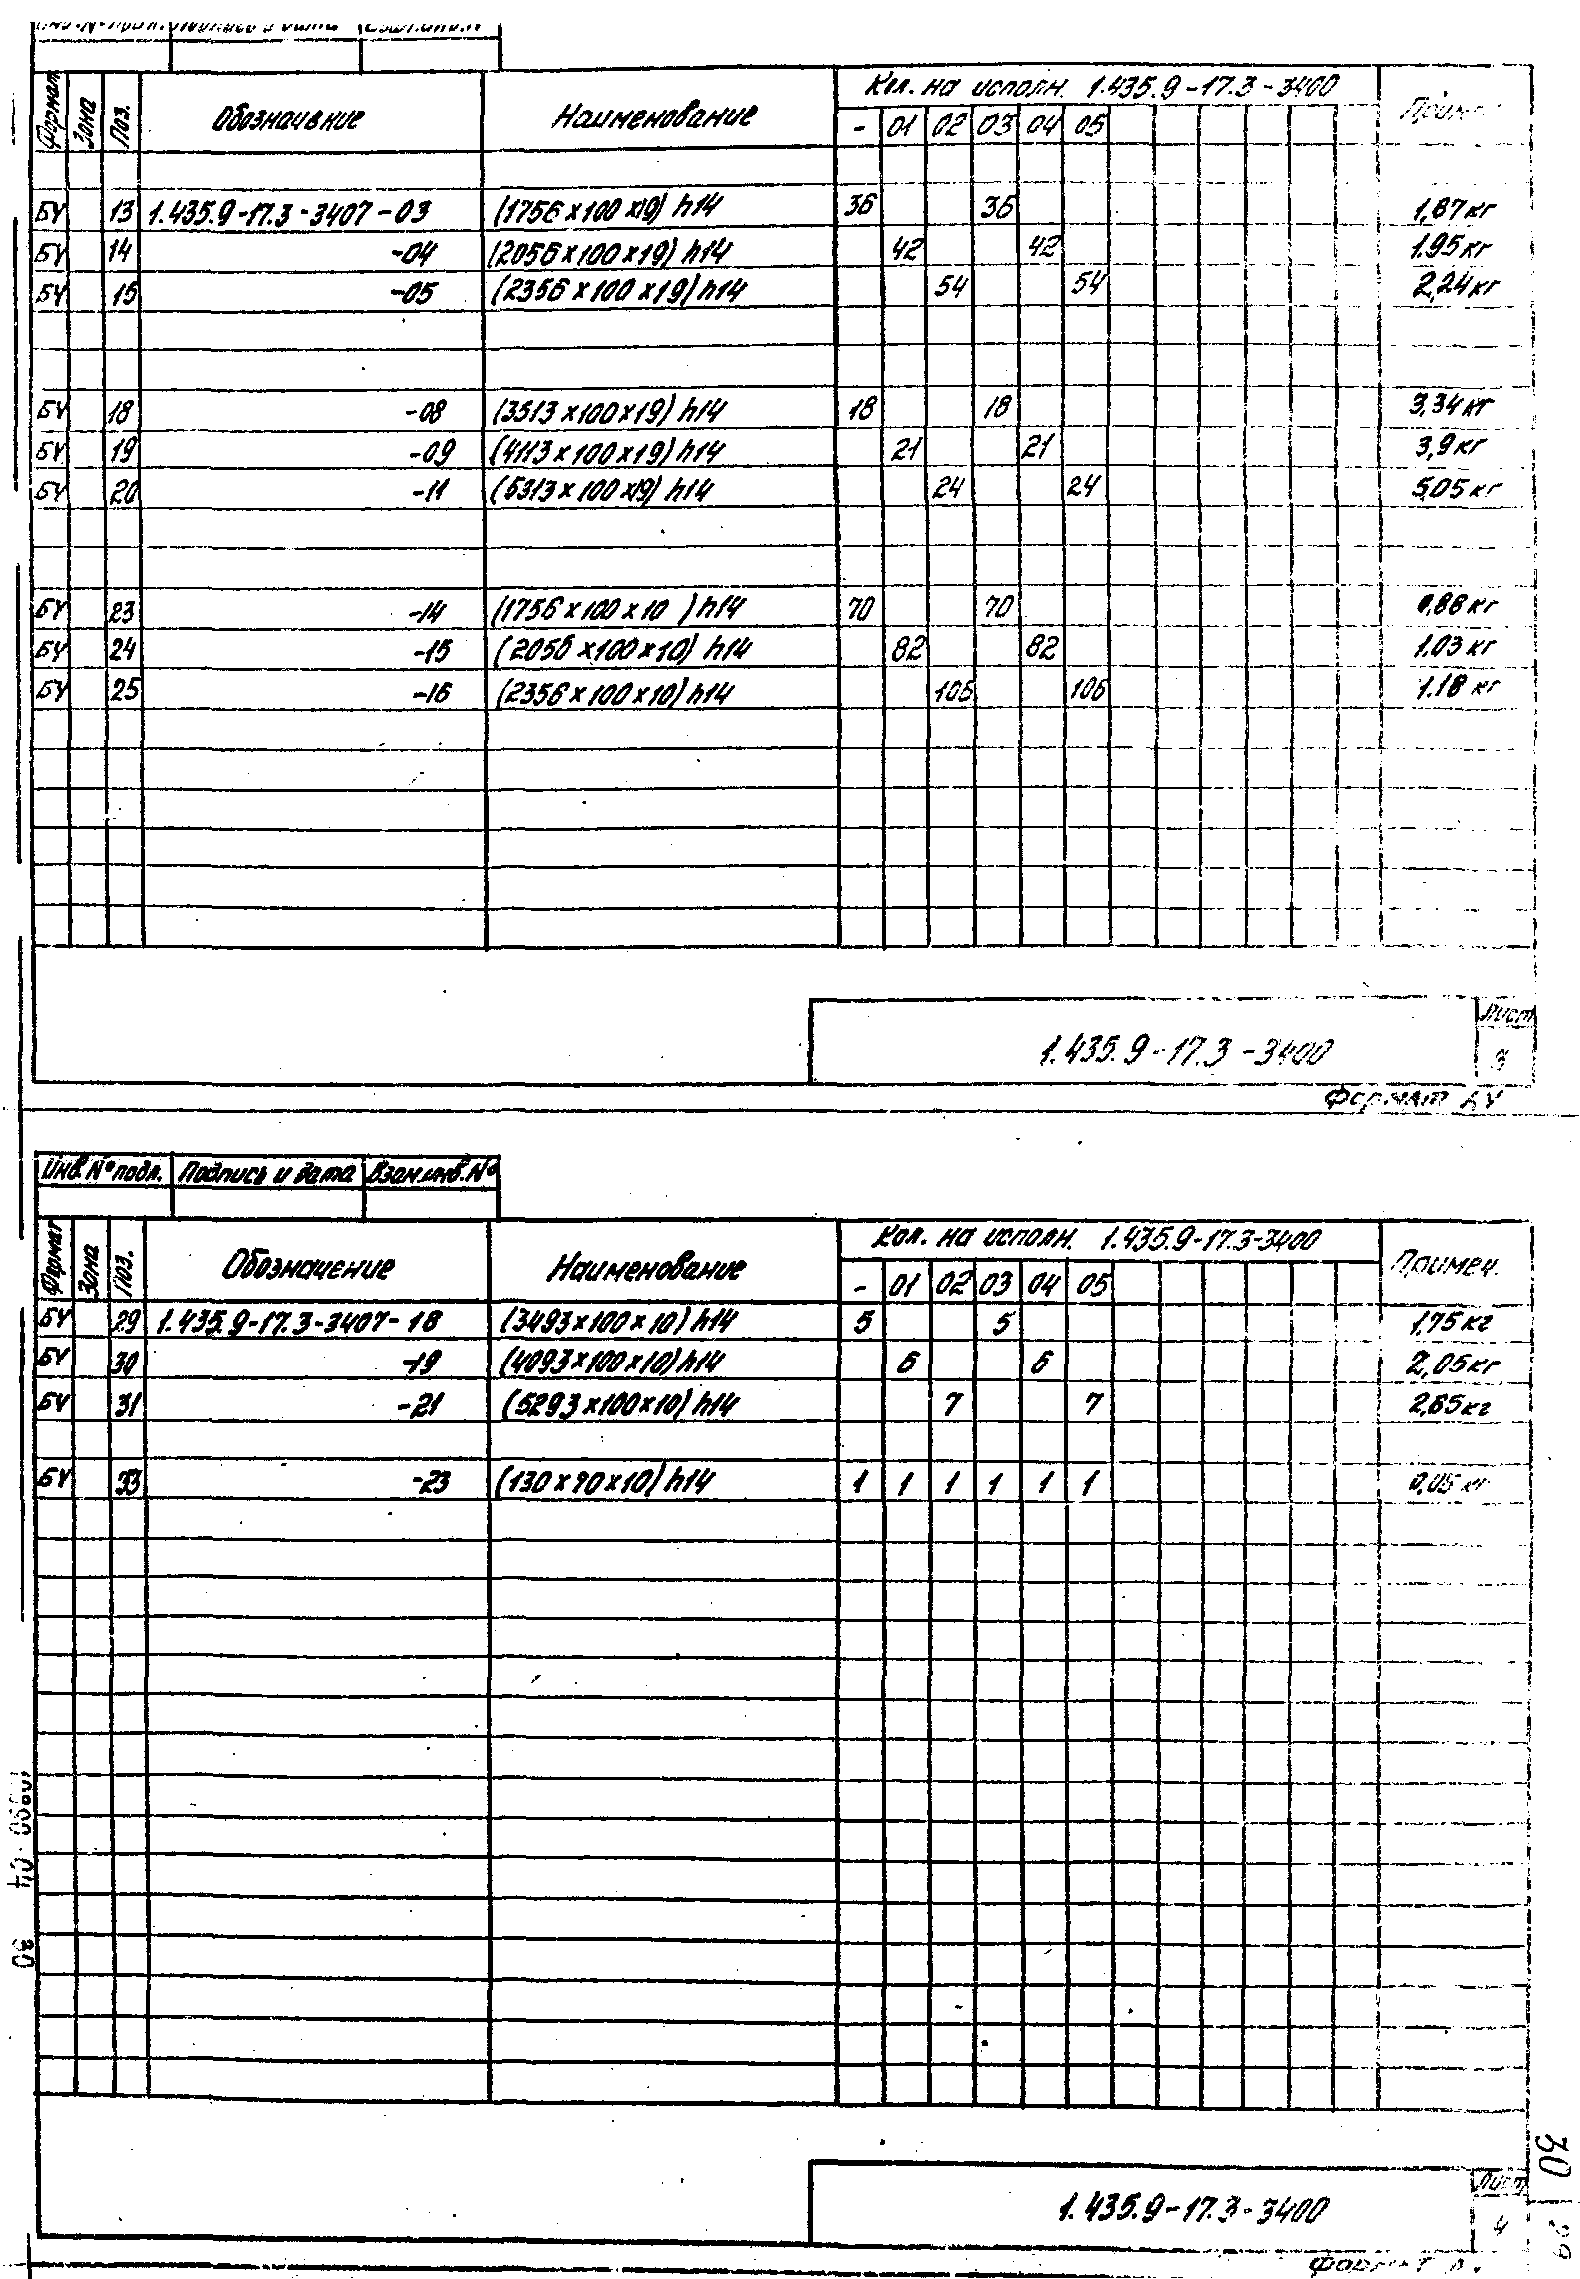 Формат Зона Поз. Обозначение Наименование Кол. на исполн. 1.435.9-17.3-3400 Примеч.
- 01 02 03 04 05
БЧ 13 1.435.9-17.3-3407-03 (1756x100x19) h14 36 36 1,67 кг
БЧ 14 -04 (2056x100x19) h14 42 42 1.95 кг
БЧ 15 -05 (2356x100x19) h14 54 54 2,24 кг
БЧ 18 -08 (3513x100x19) h14 18 18 3,34 кг
БЧ 19 -09 (4113x100x19) h14 21 21 3,9 кг
БЧ 20 -11 (5313x100x19) h14 24 24 5,05 кг
БЧ 23 -14 (1756x100x10) h14 70 70 0,88 кг
БЧ 24 -15 (2056x100x10) h14 82 82 1.03 кг
БЧ 25 -16 (2356x100x10) h14 106 106 1.18 кг
1.435.9-17.3-3400
Лист
3
Формат
Инв.№ подл. Подпись и дата Взам.инв.№
Формат Зона Поз. Обозначение Наименование Кол. на исполн. 1.435.9-17.3-3400 Примеч.
- 01 02 03 04 05
БЧ 29 1.435.9-17.3-3407-18 (3493x100x10) h14 5 5 1,75 кг
БЧ 30 -19 (4093x100x10) h14 6 6 2,05 кг
БЧ 31 -21 (5293x100x10) h14 7 7 2,65 кг
БЧ 33 -23 (130x70x10) h14 1 1 1 1 1 1 0,05 кг
1.435.9-17.3-3400
Лист
4
Формат
04 30
30